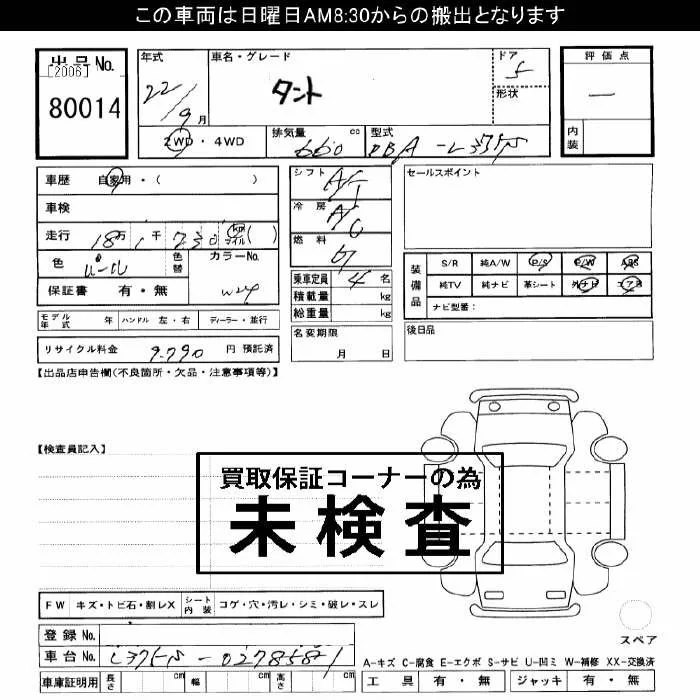 この車両は日曜日AM8:30からの搬出となります
出品No.
[2006]
80014
年式
22/9月
車名・グレード
タント
ドア
5
形状
評価点
—
内装
2WD・4WD
排気量
660 cc
型式
DBA-L375S
車歴 自家用・( )
車検
走行 18万1千230 km マイル ( )
色
色替
カラーNo.
W24
保証書 有・無
シフト
冷房
燃料
乗車定員 4名
積載量 kg
総重量 kg
セールスポイント
装備品
S/R 純A/W P/S P/W ABS
純TV 純ナビ 革シート 外ナビ エアB
ナビ型番:
モデル年式 年 ハンドル 左・右 ディーラー・並行
名変期限
月 日
後日品
リサイクル料金 9.790 円 預託済
【出品店申告欄(不良箇所・欠品・注意事項等)】
【検査員記入】
買取保証コーナーの為
未検査
FW キズ・トビ石・割レX シート内装 コゲ・穴・汚レ・シミ・破レ・スレ
スペア
登録No.
車台No. L375S-0278581
A-キズ C-腐食 E-エクボ S-サビ U-凹ミ W-補修 XX-交換済
車庫証明用 長さ cm 幅 cm 高さ cm
工具 有・無 ジャッキ 有・無